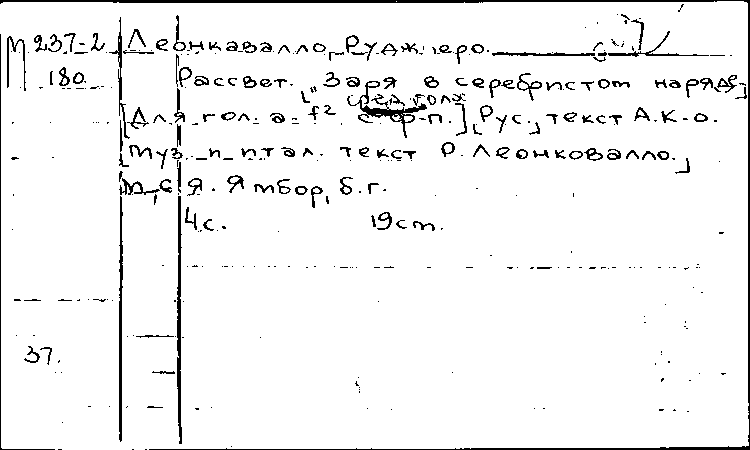 М 237-2 Леонкавалло, Руджиеро.
180 Рассвет. „Заря в серебристом наряде]
сред голх
[Для гол. a - f² с ф-п.] [Рус.] текст А. К-о.
[Муз. и итал. текст Р. Леонковалло.]
М., Я. Ямбор, б. г.
4 с. 19 ст.
37.